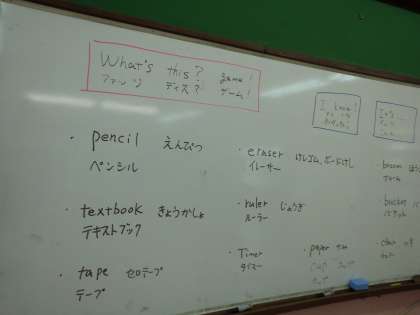 What's this? game!
ファッツ ディス? ゲーム!
I know!
It's
・pencil えんぴつ
ペンシル
・eraser けしゴム、ボードけし
イレーサー
・textbook きょうかしょ
テキストブック
・ruler じょうぎ
ルーラー
・tape セロテープ
テープ
・Timer
タイマー
・paper
cup
・broom
・bucket
バケット
・chair